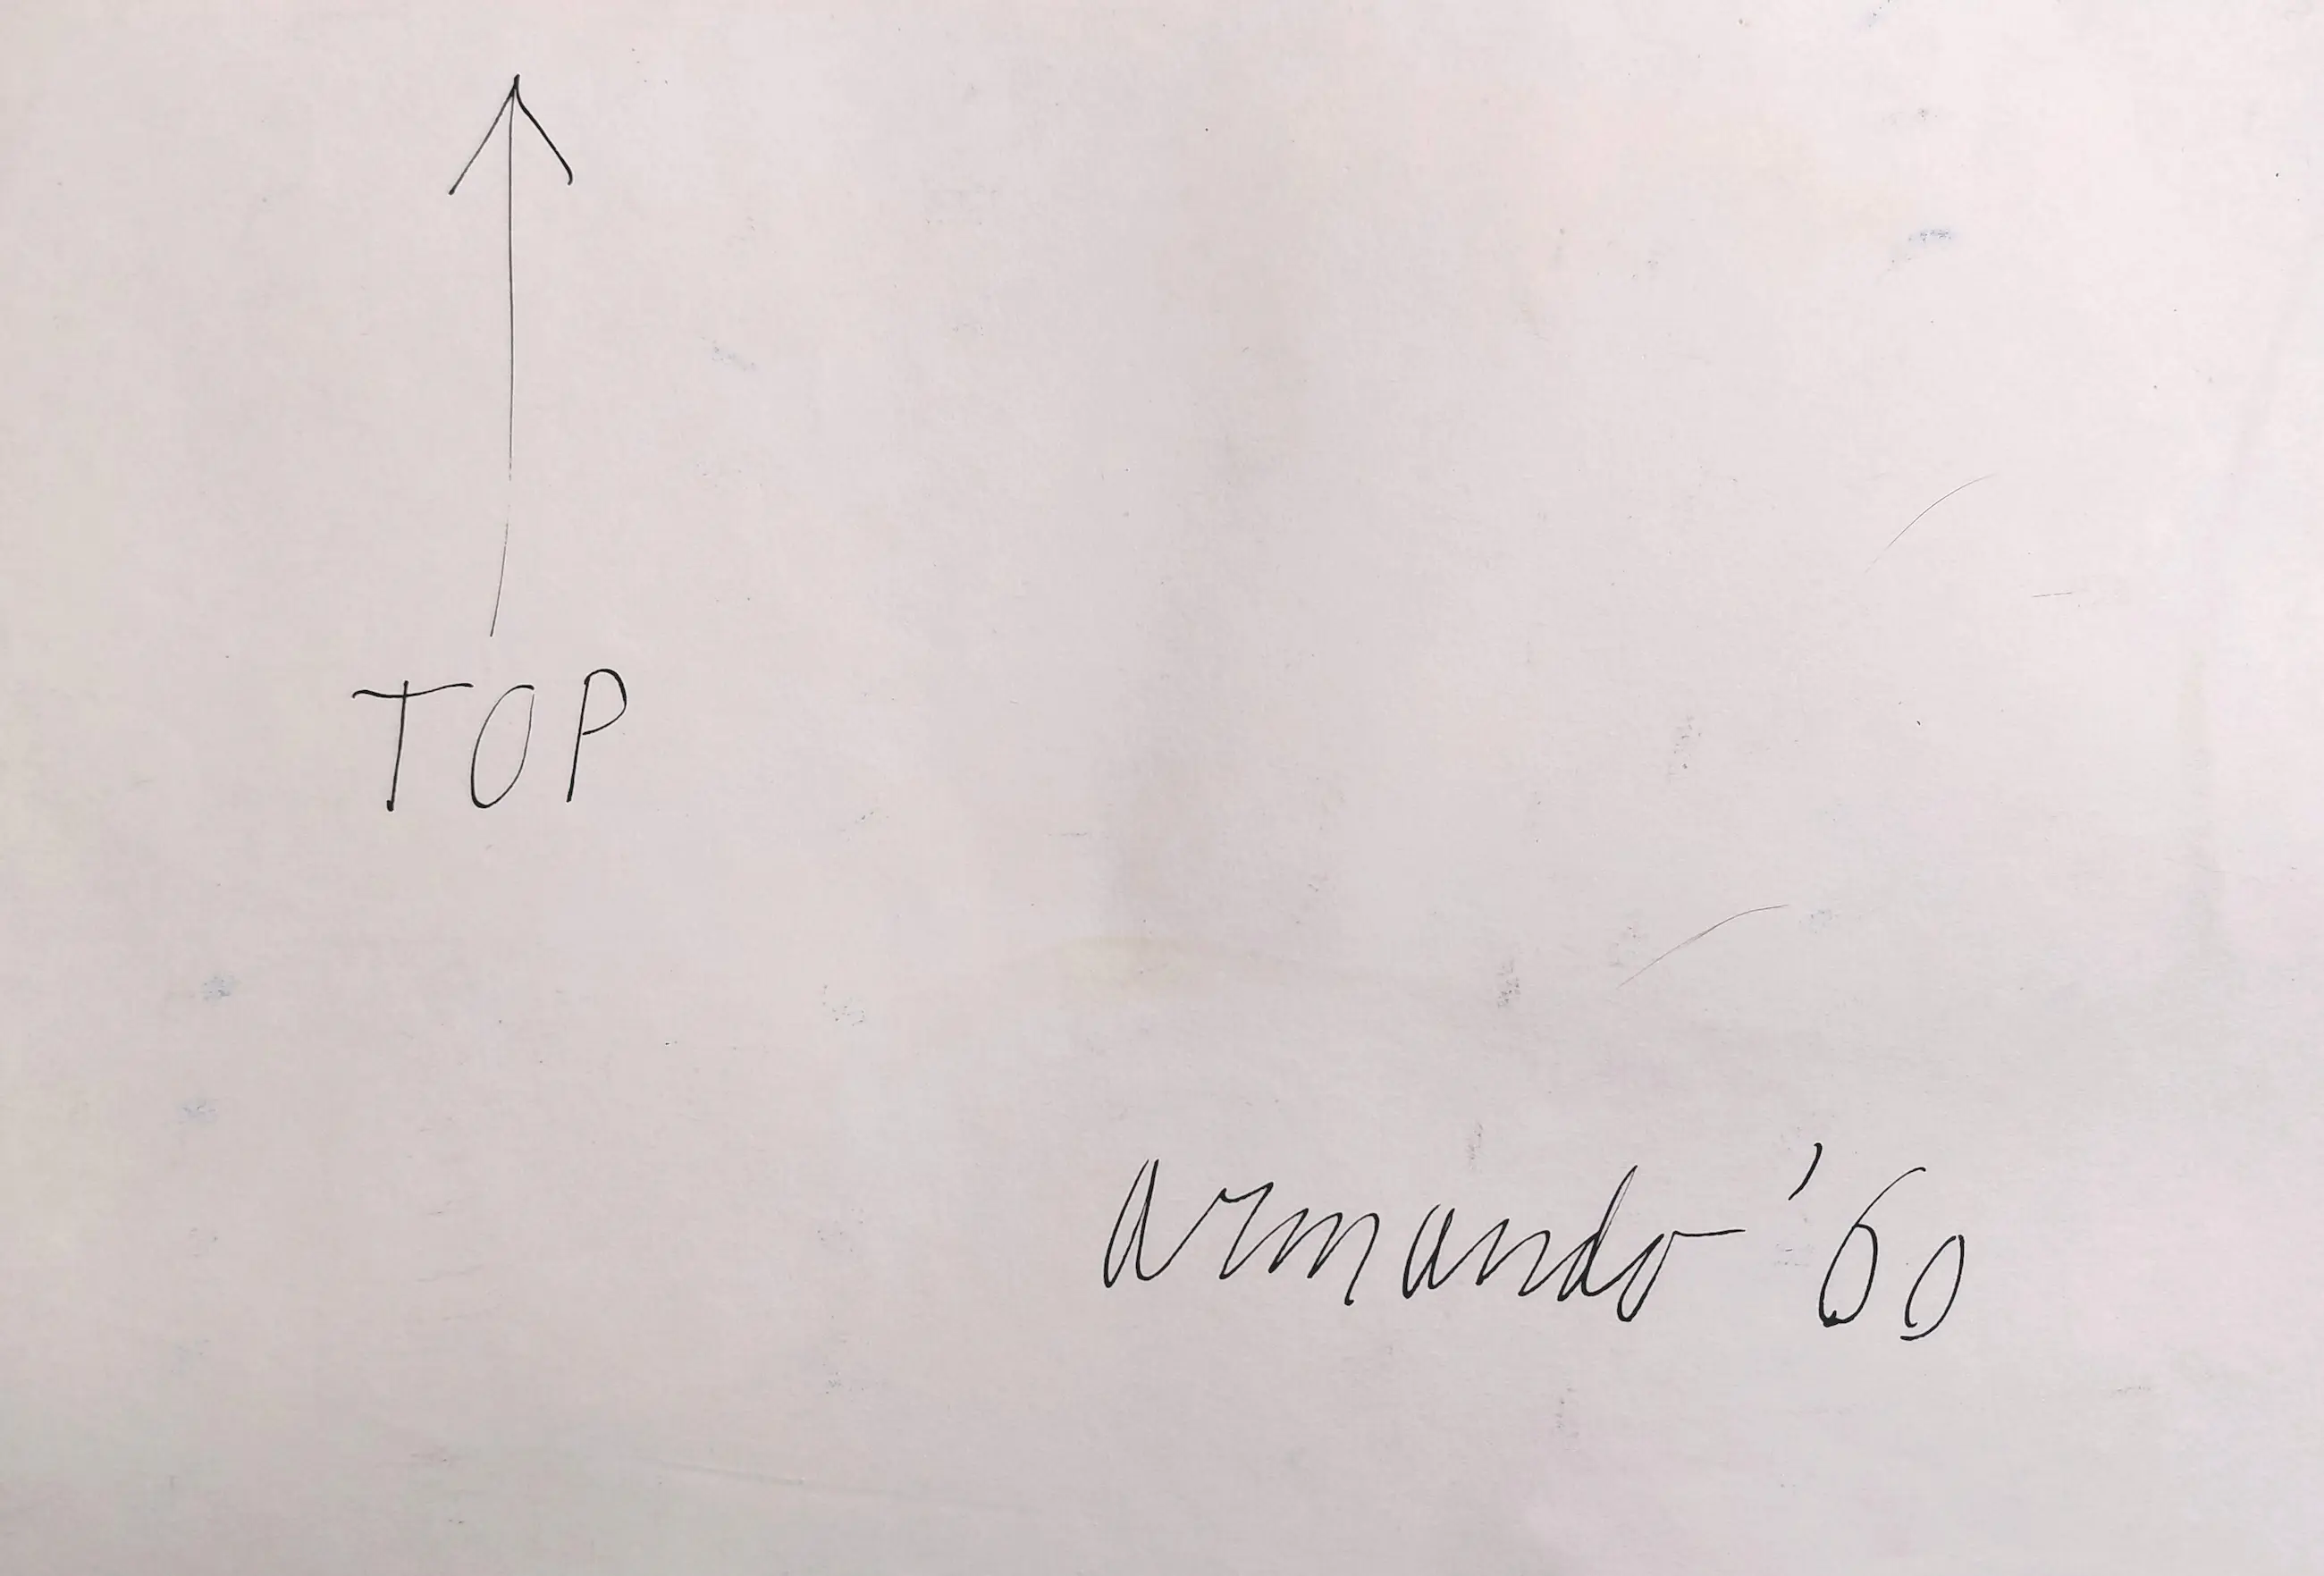 TOP
armando '60